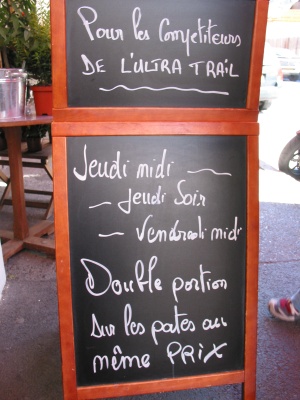 Pour les Compétiteurs
DE L'ULTRA TRAIL
Jeudi midi
- Jeudi Soir
- Vendredi midi
Double portion
sur les pates au
même PRIX